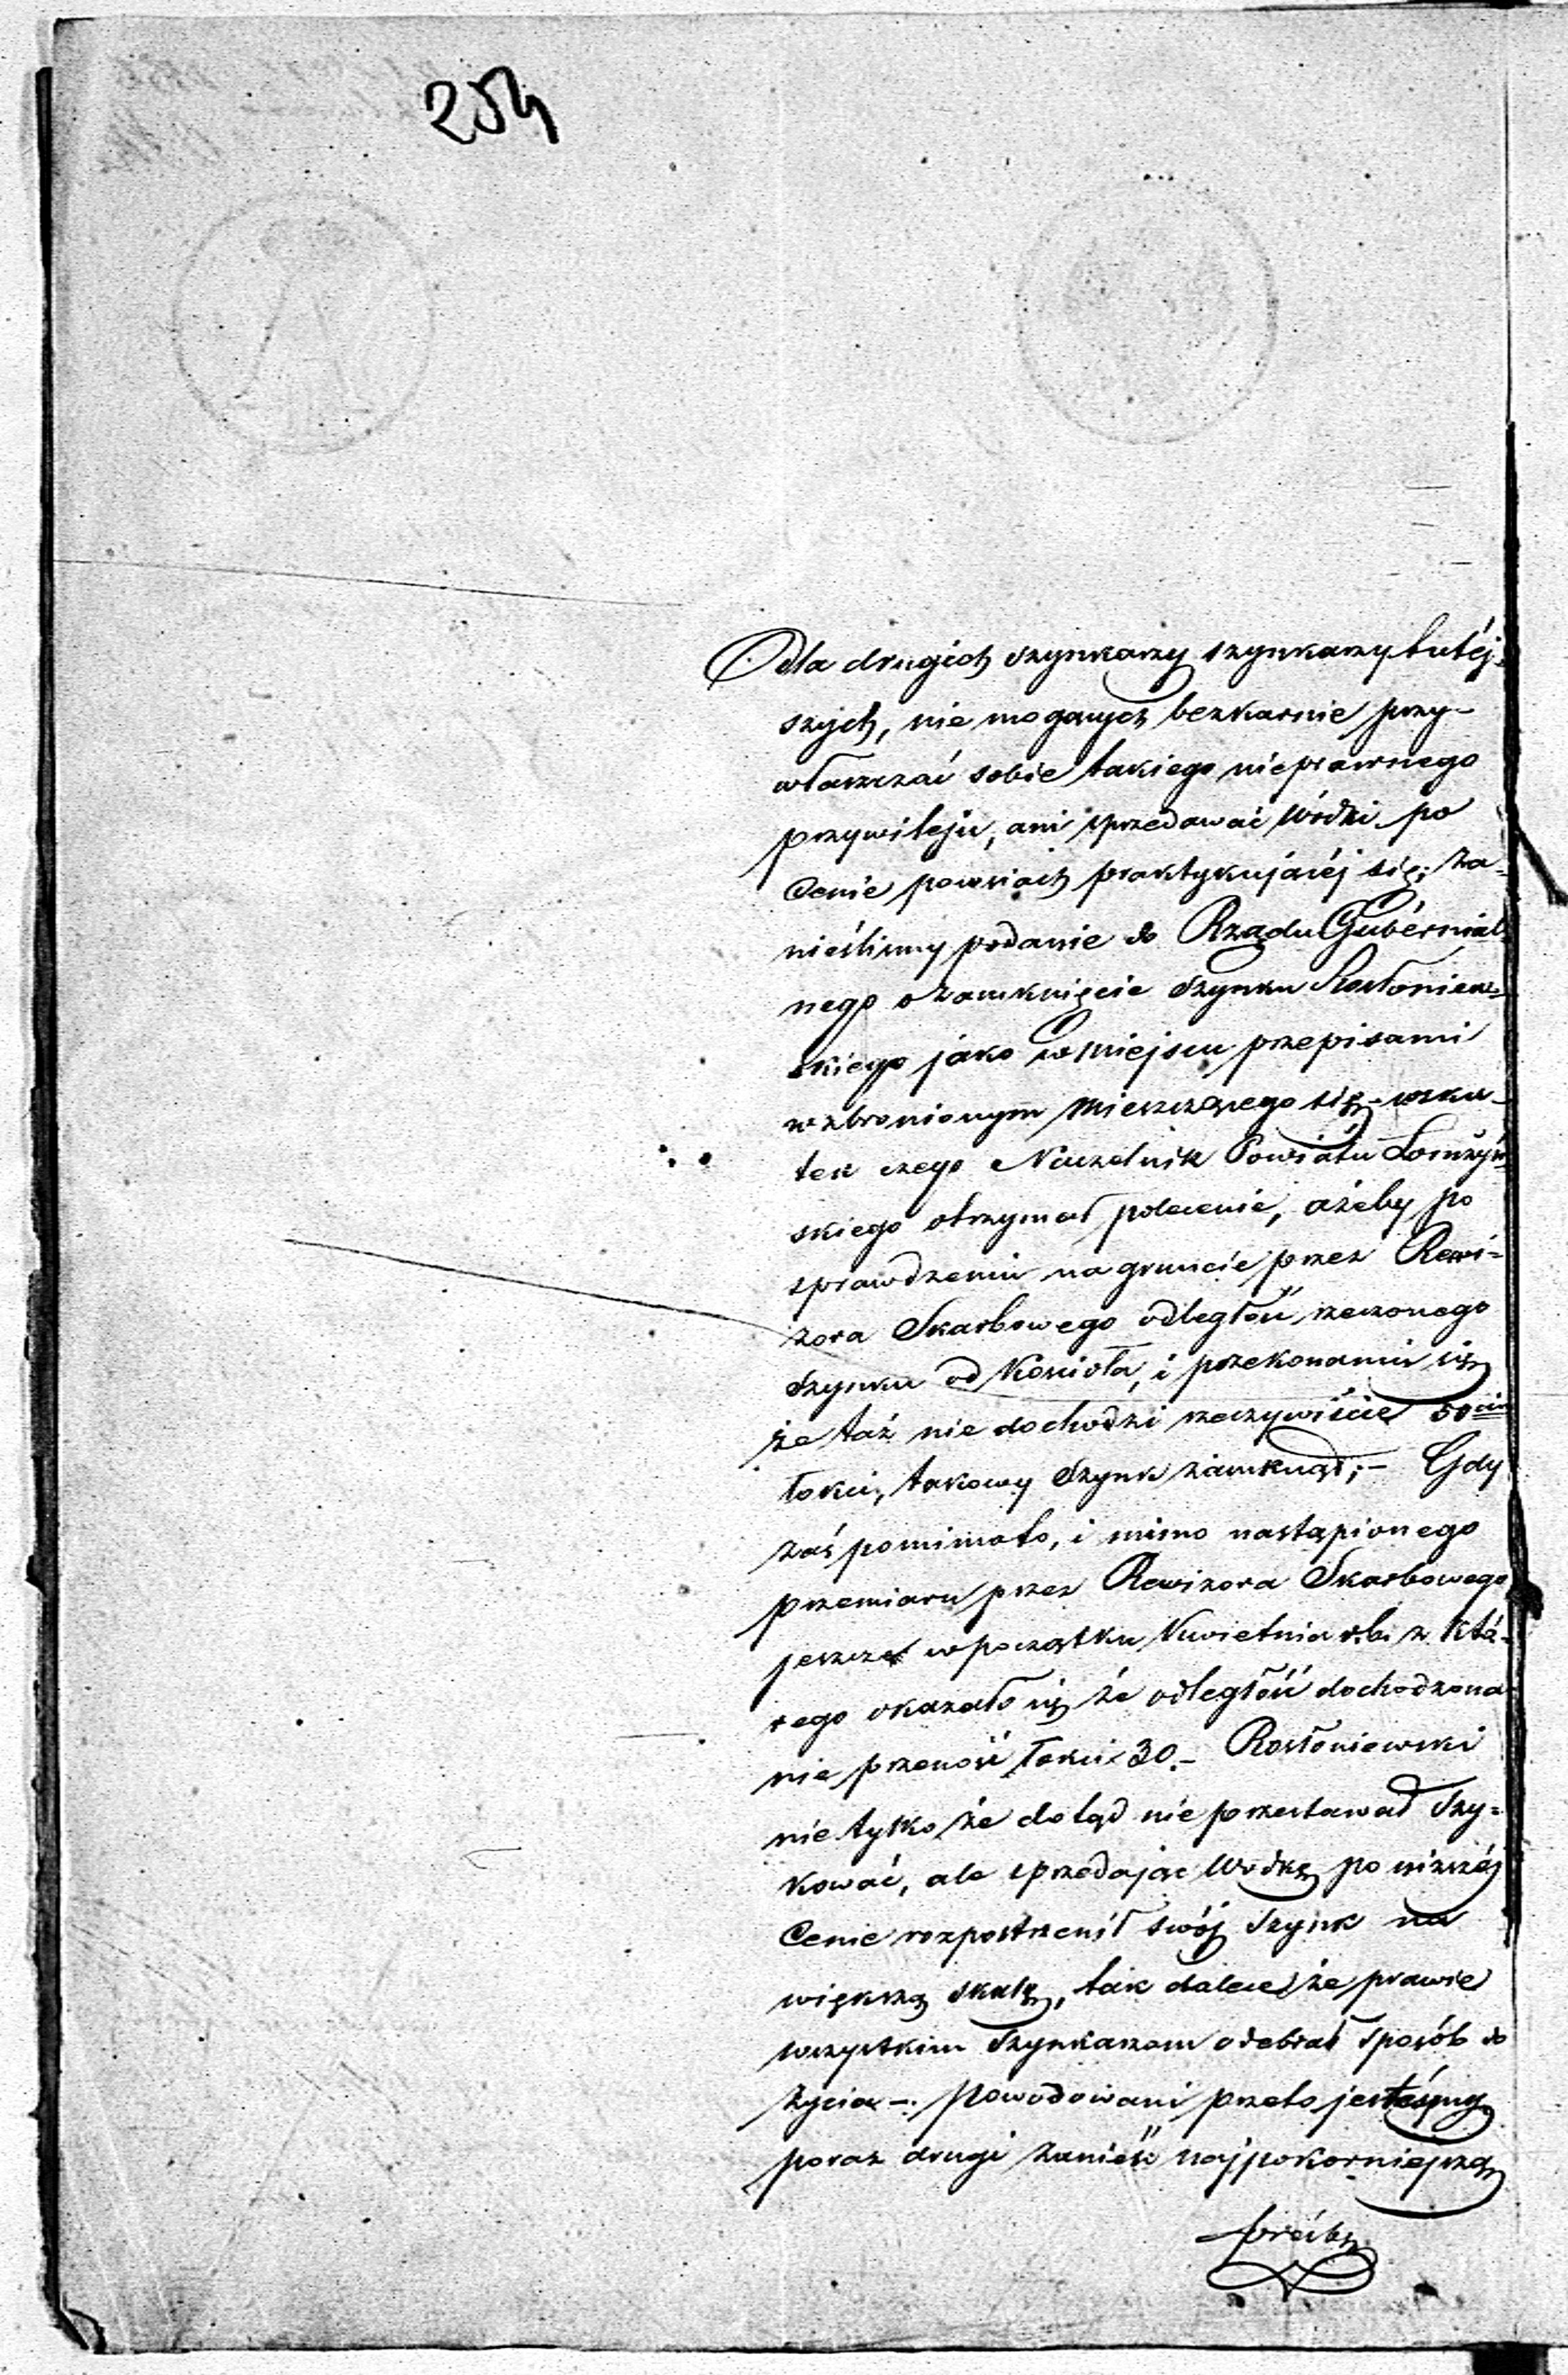 254
Odla drugich szynkarzy szynkarzy tutéj-
szych, nie mogących bezkarnie przy-
właszczać sobie takiego nieprawnego
przywileju, ani sprzedawać Wódki po
Cenie powsiach praktykującéj się; za-
nieśliśmy podanie do Rządu Gubérnial-
nego o zamknięcie Szynku Rosłoniew-
skiego jako w miejscu przepisami
wzbronionym mieszczącego się – wsku-
tek czego Naczelnik Powiatu Łomżyń-
skiego otrzymał polecenie, ażeby po
sprawdzeniu na gruncie przez Rewi-
zora Skarbowego odległość rzeczonego
Szynku od Kościoła, i przekonaniu się
że taż nie dochodzi rzeczywiście 50ciu
łokci, takowy Szynk zamknął; – Gdy
zaś pomimoto, i mimo nastąpionego
przemiaru przez Rewizora Skarbowego
jeszcze w początku Kwietnia r.b. z któ-
rego okazało się że odległość dochodzona
nie przenosi łokci 30. – Rosłoniewski
nie tylko że dotąd nie przestawał Szy-
kować, ale sprzedając Wodkę po niższéj
Cenie rozpostrzenił swój Szynk na
większą skalę, tak dalece że prawie
wszystkim Szynkarzom odebrał sposób do
życia –. powodowani przeto jesteśmy
poraz drugi zanieść najpokorniejszą
proźbę